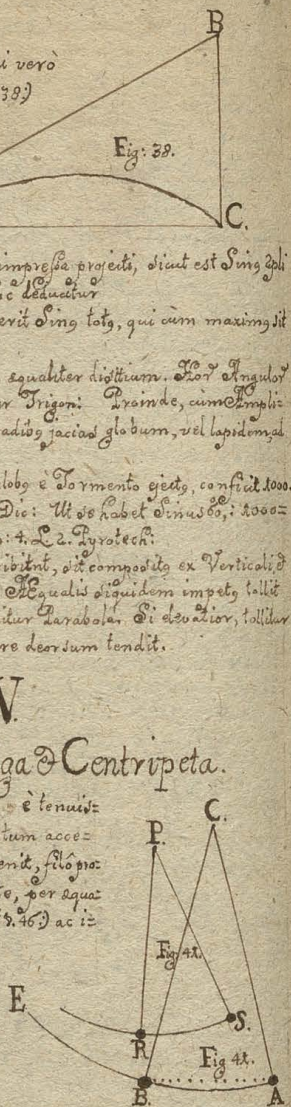 B
i verò
38:)
Fig: 38.
C.
impressa projecti, sicut est Sing 2pli
ic deducitur
erit Sing totg, qui cùm maximg sit
equaliter distium. Hor Angulor
ur Trigon: Proinde, cùm Ampli=
radibg jacias globum, vel lapidem, ad
lobg è Tormento ejectg, conficit 1000.
Dic: Ut se habet Sinus 60,: 1000=
: 4. L 2. Pyrotech:
ibitnt, sit compositg ex Verticali, &
Æqualis siquidem impetg tollit
itur Parabola. Si elevatior, tollitur
re deorsum tendit.
V.
ga & Centripeta.
è tenuis=
tum acce=
enit, filô pro=
te, per equa=
46:) ac i=
C.
P.
Fig: 41.
E
S.
R
Fig 41.
B.
A